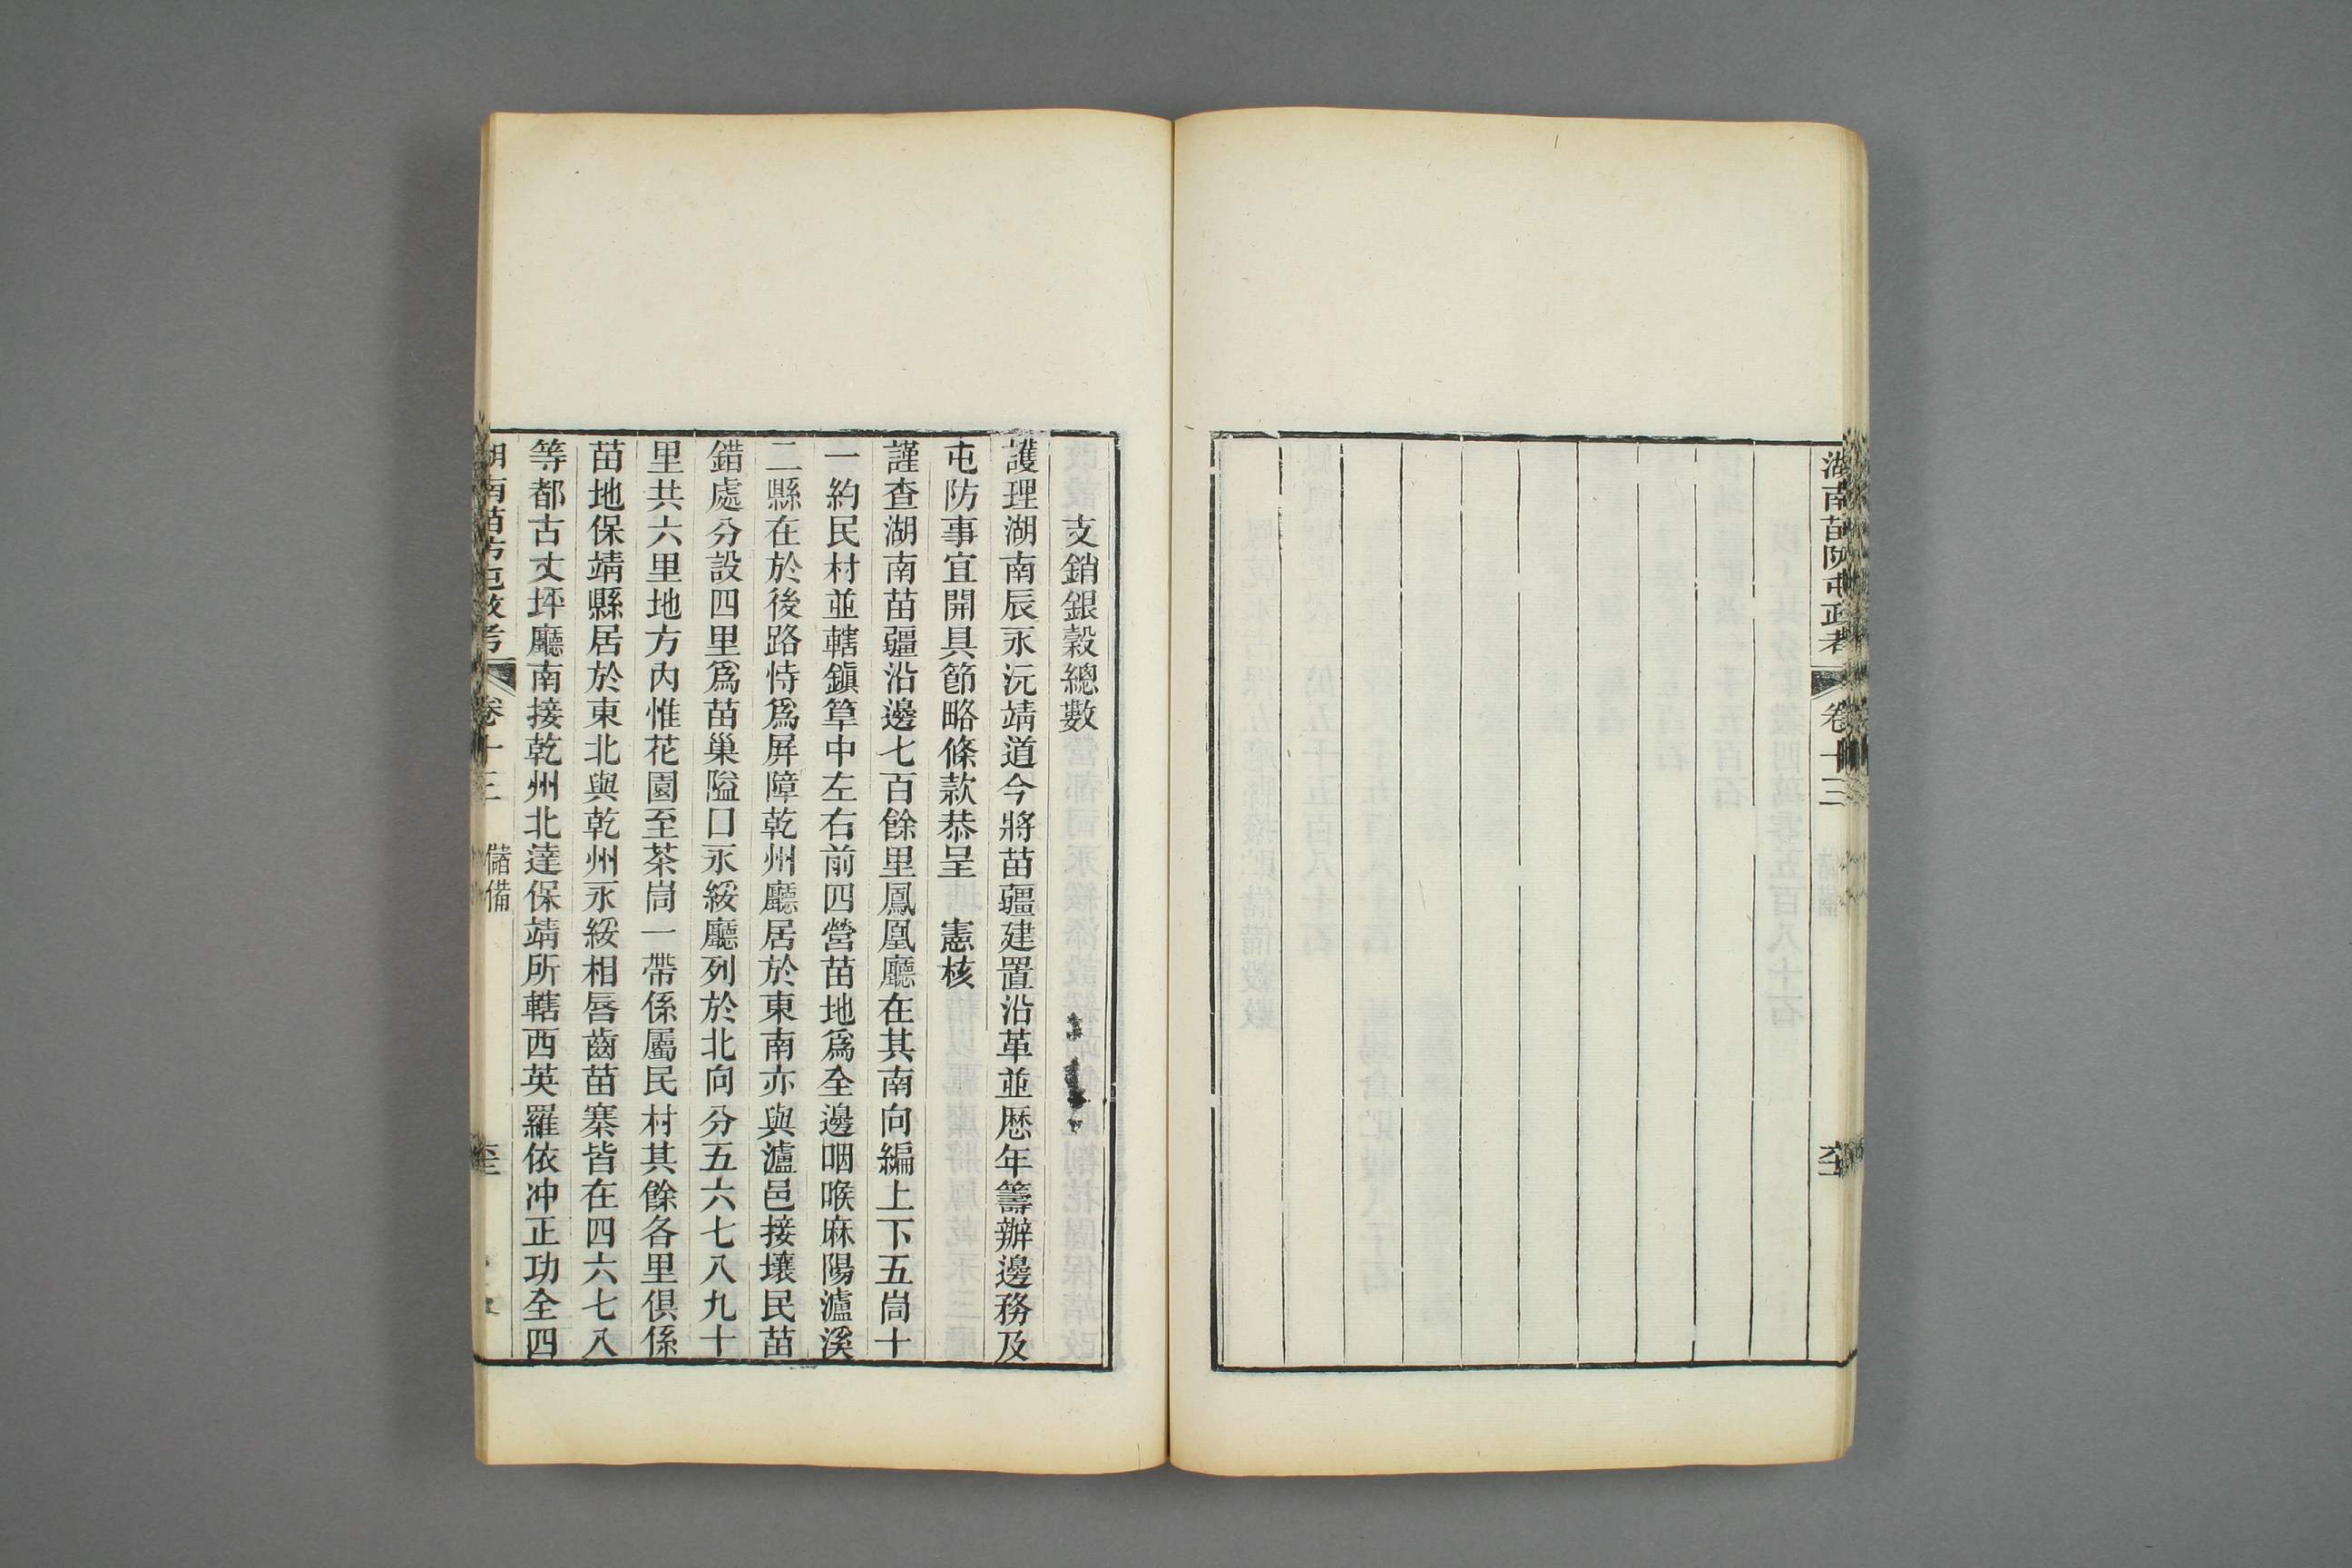 湖南苗防屯政考 卷十三 儲備
支銷銀穀總數
護理湖南辰永沅靖道今將苗疆建置沿革並歷年籌辦邊務及
屯防事宜開具節略條款恭呈 憲核
謹查湖南苗疆沿邊七百餘里鳳凰廳在其南向編上下五峝十
一約民村並轄鎭筸中左右前四營苗地爲全邊咽喉麻陽瀘溪
二縣在於後路恃爲屏障乾州廳居於東南亦與瀘邑接壤民苗
錯處分設四里爲苗巢隘口永綏廳列於北向分五六七八九十
里共六里地方內惟花園至茶峝一帶係屬民村其餘各里俱係
苗地保靖縣居於東北與乾州永綏相唇齒苗寨皆在四六七八
等都古丈坪廳南接乾州北達保靖所轄西英羅依冲正功全四
湖南苗防屯政考 卷十三 儲備